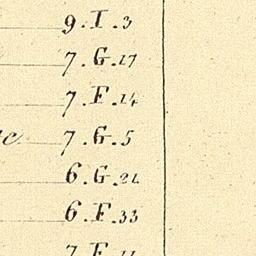 9.I.3
7.G.17
7.F.14
7.G.5
6.G.21
6.F.33
7.F.11